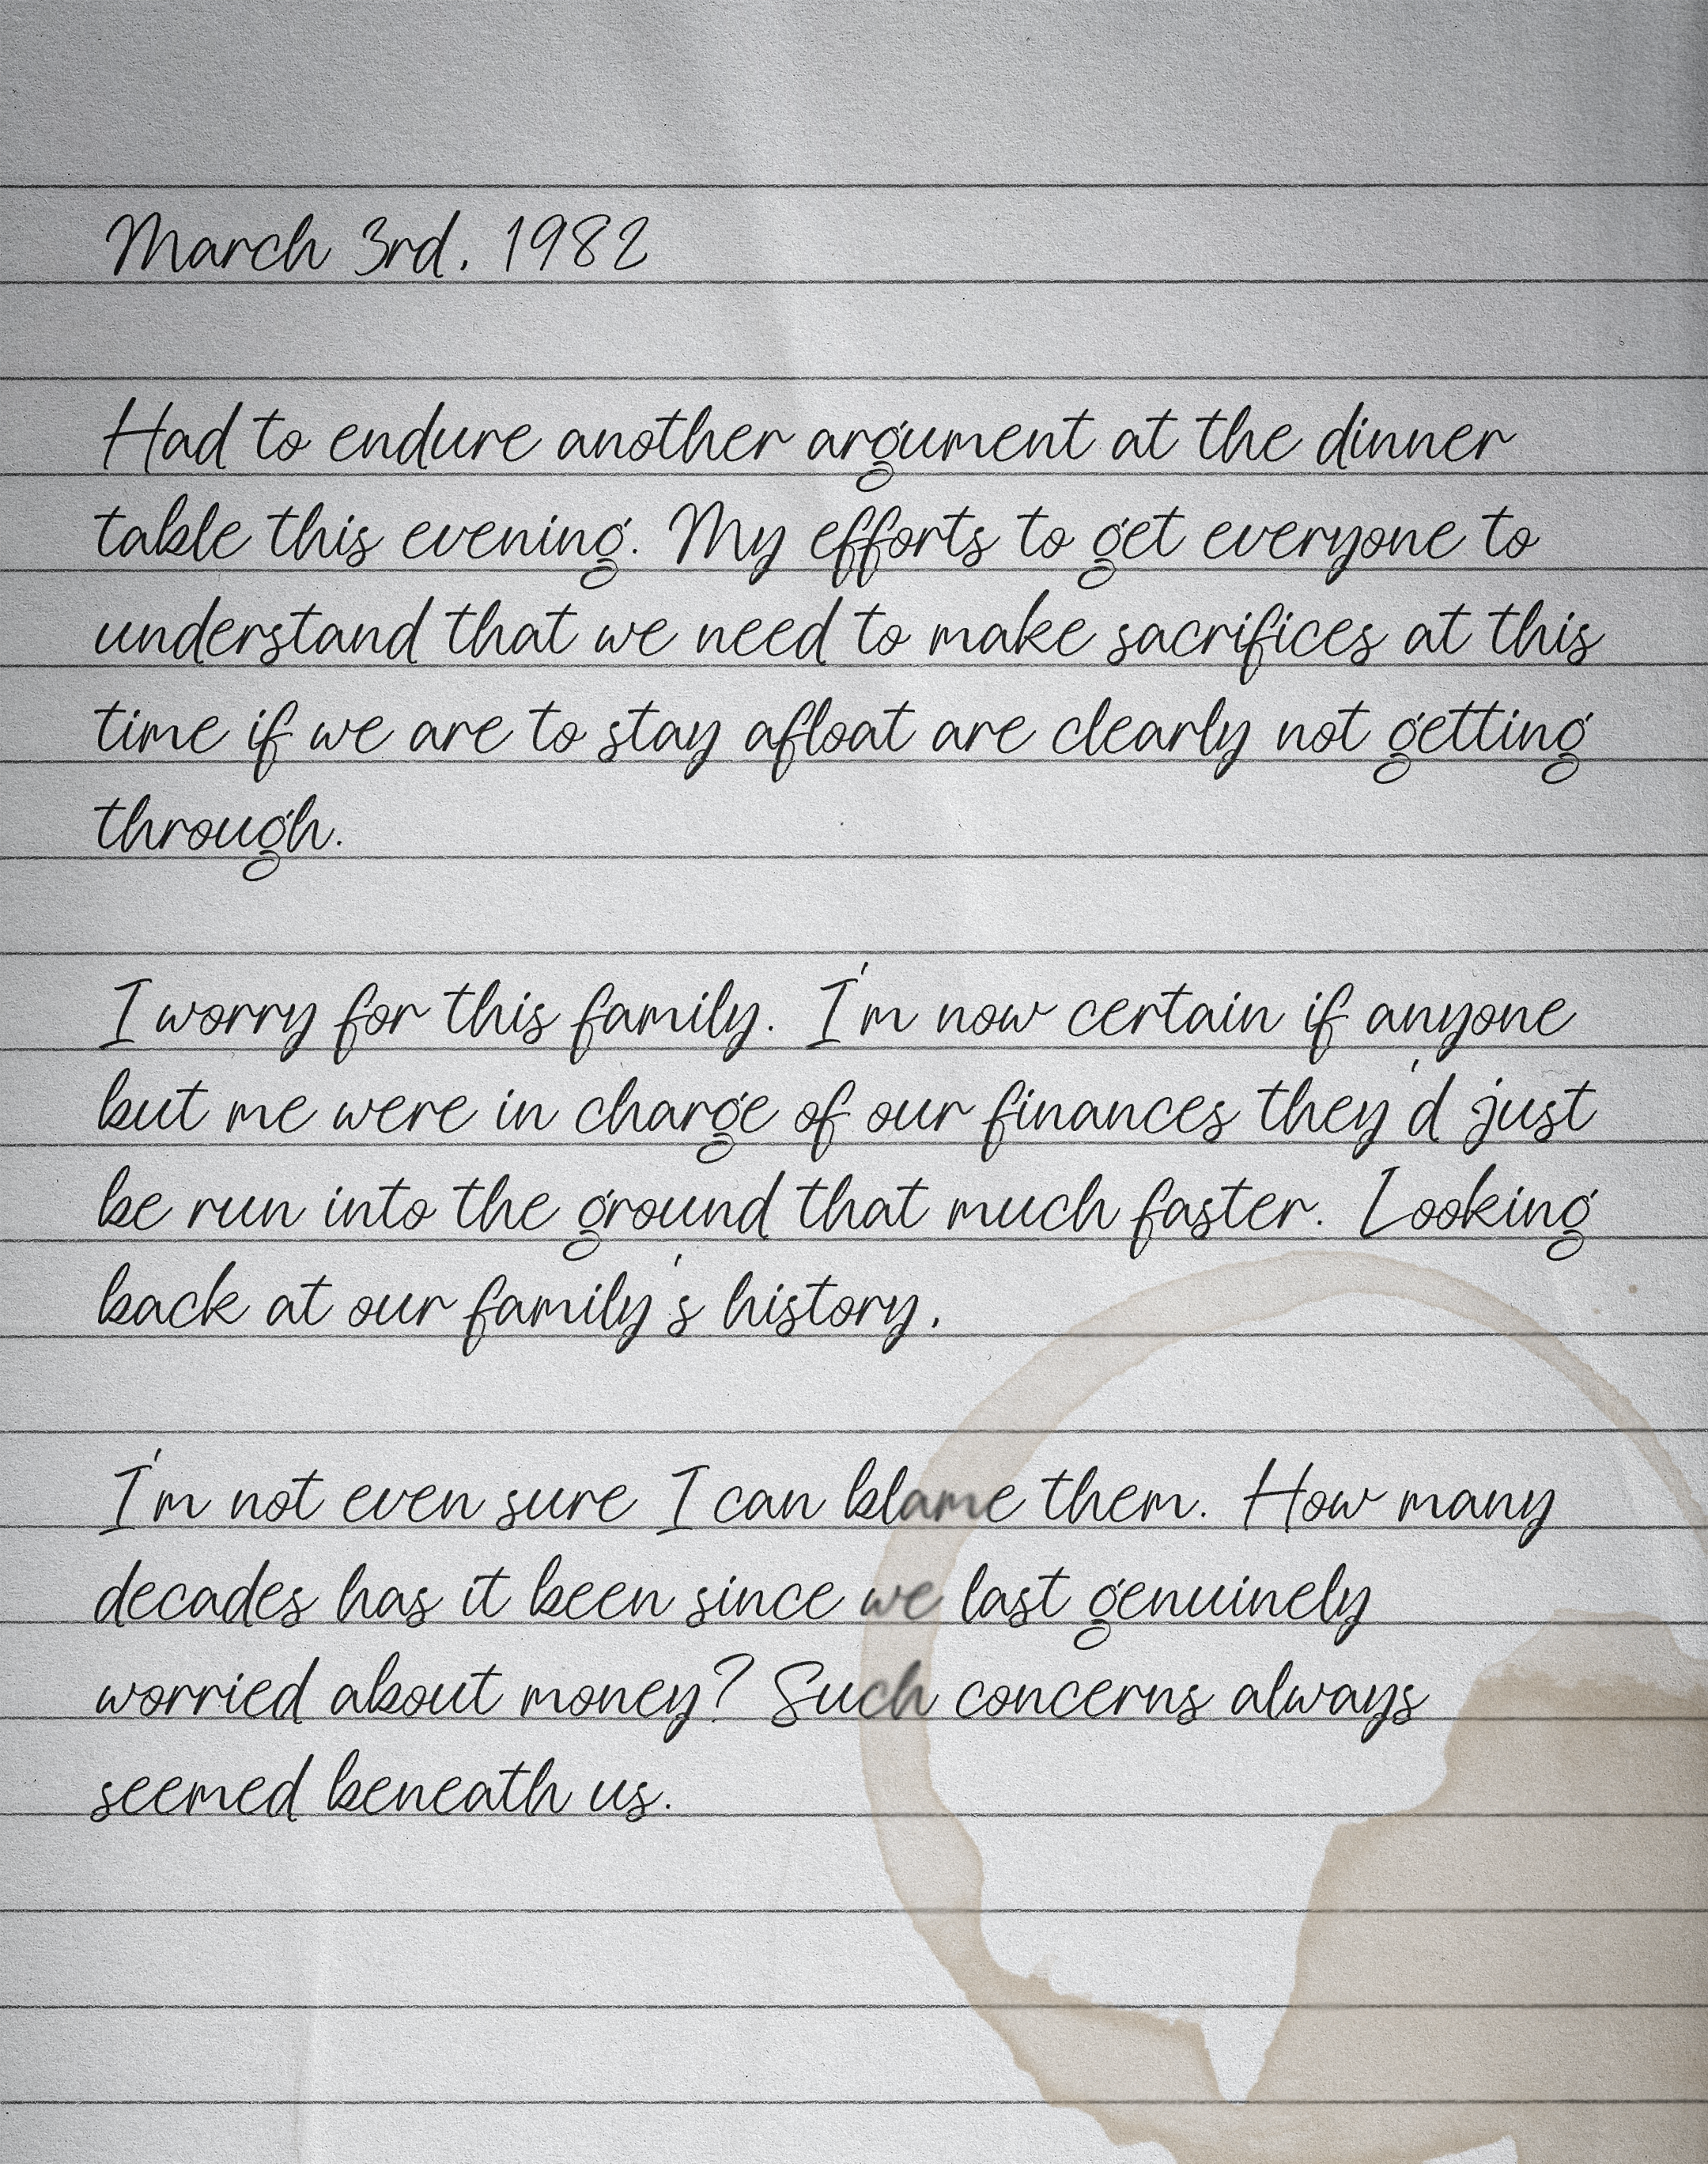 March 3rd, 1982
Had to endure another argument at the dinner
table this evening. My efforts to get everyone to
understand that we need to make sacrifices at this
time if we are to stay afloat are clearly not getting
through.
I worry for this family. I'm now certain if anyone
but me were in charge of our finances they'd just
be run into the ground that much faster. Looking
back at our family's history,
I'm not even sure I can blame them. How many
decades has it been since we last genuinely
worried about money? Such concerns always
seemed beneath us.